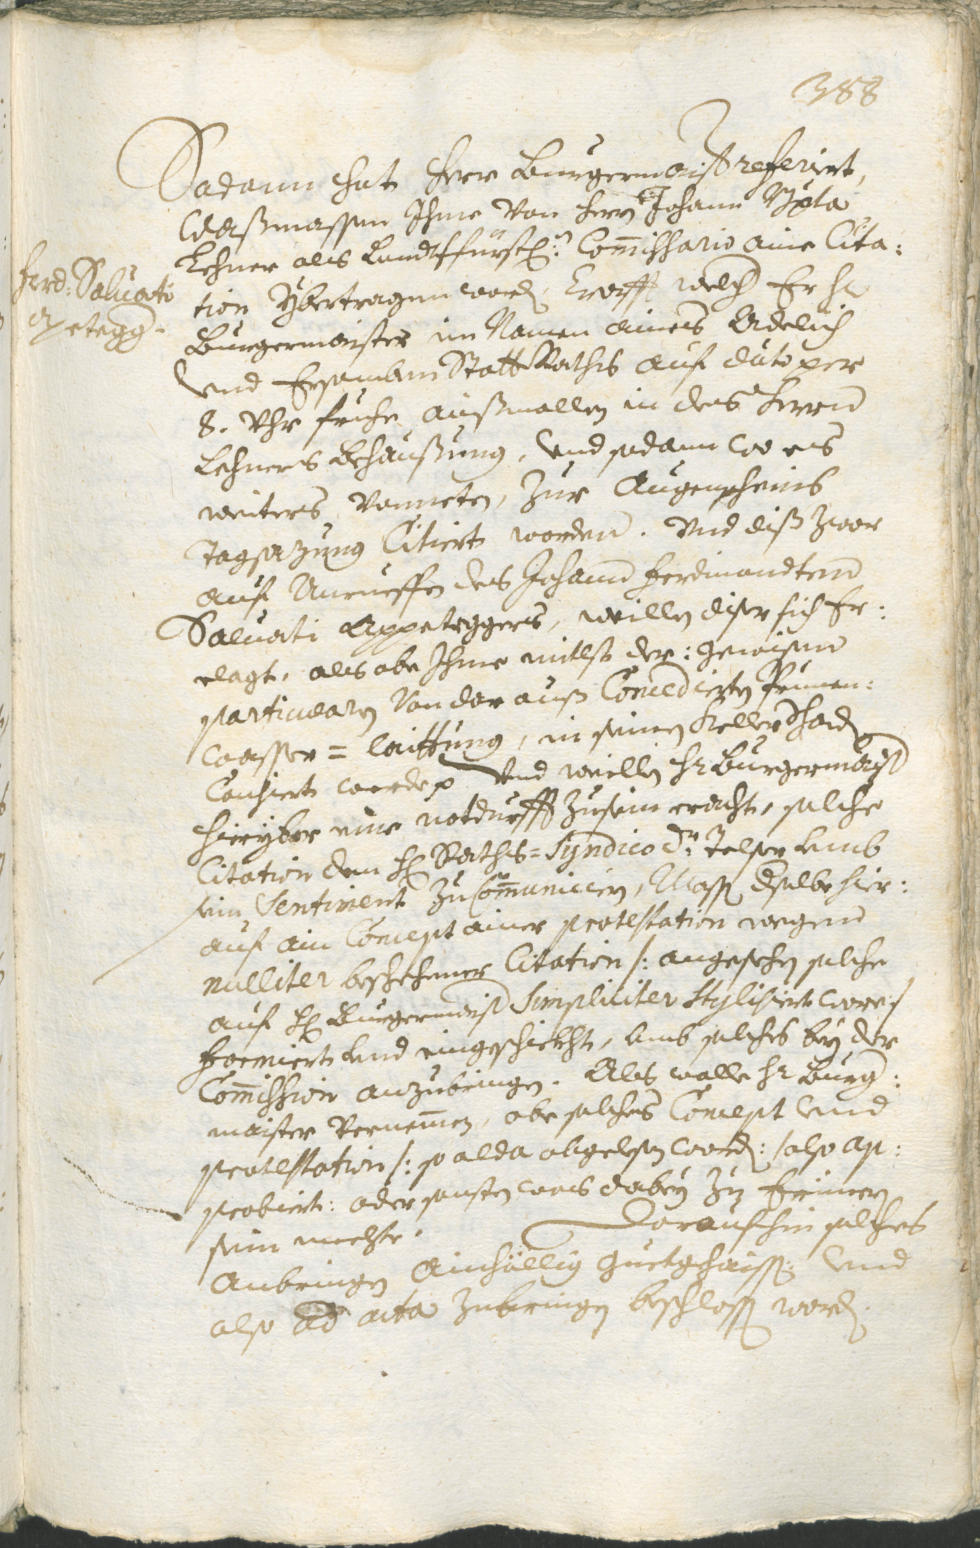 388
Sodann hat Herr Burgermaist referirt,
wassmassen Ihme von Herrn Johann
Lehner als Landtsfürstl: Commissario aine Cita:
Ferd: Saluati
apotegg.
tion ybertragen word, Crafft welch Er Hr
Burgermaister im Namen aines Adelich
und Ersamben Statt Raths auf dato per
8. Uhr fruhe in des Herrn
Lehners Behaußung, und sodann wo es
weiters vonneten, zur Augenscheins
Tagsazung Citiert worden. Und diß zwar
auf Anrueffen des Johann Ferdinandten
Saluati Appoteggers, weillen diser sich Er:
clagt, als obe Ihme mitlst der: gewisen
particularn von dar auß Concedierten Prunen:
wasser=laittung, in seinen Keller Schad
Causiert werde. Und weillen Hr Burgermaist
hieryber eine notdurfft zusein eracht, solche
Citation dem H Raths=Syndico Dr: Telser umb
sein Sentiment zu Communiciern, Mass dselbe hier:
auf ain Concept ainer protestation wegen
nulliter beschehener Citation /: angesehen solche
auf H Burgermaist Simpliciter Stylisiert ware :/
formiert und eingeschickht, umb solches bey der
Commission anzubringen. Als wolle Hr Burg:
maister vernemmen, obe solches Concept und
protestation /: so alda abgelesen word: / also ap:
probiert: oder sonsten was dabey zu Erinnern
sein mechte. Daraufhin solches
Anbringen Ainhällig guetgehaiss: und
also ad acta zubringen beschloss word.